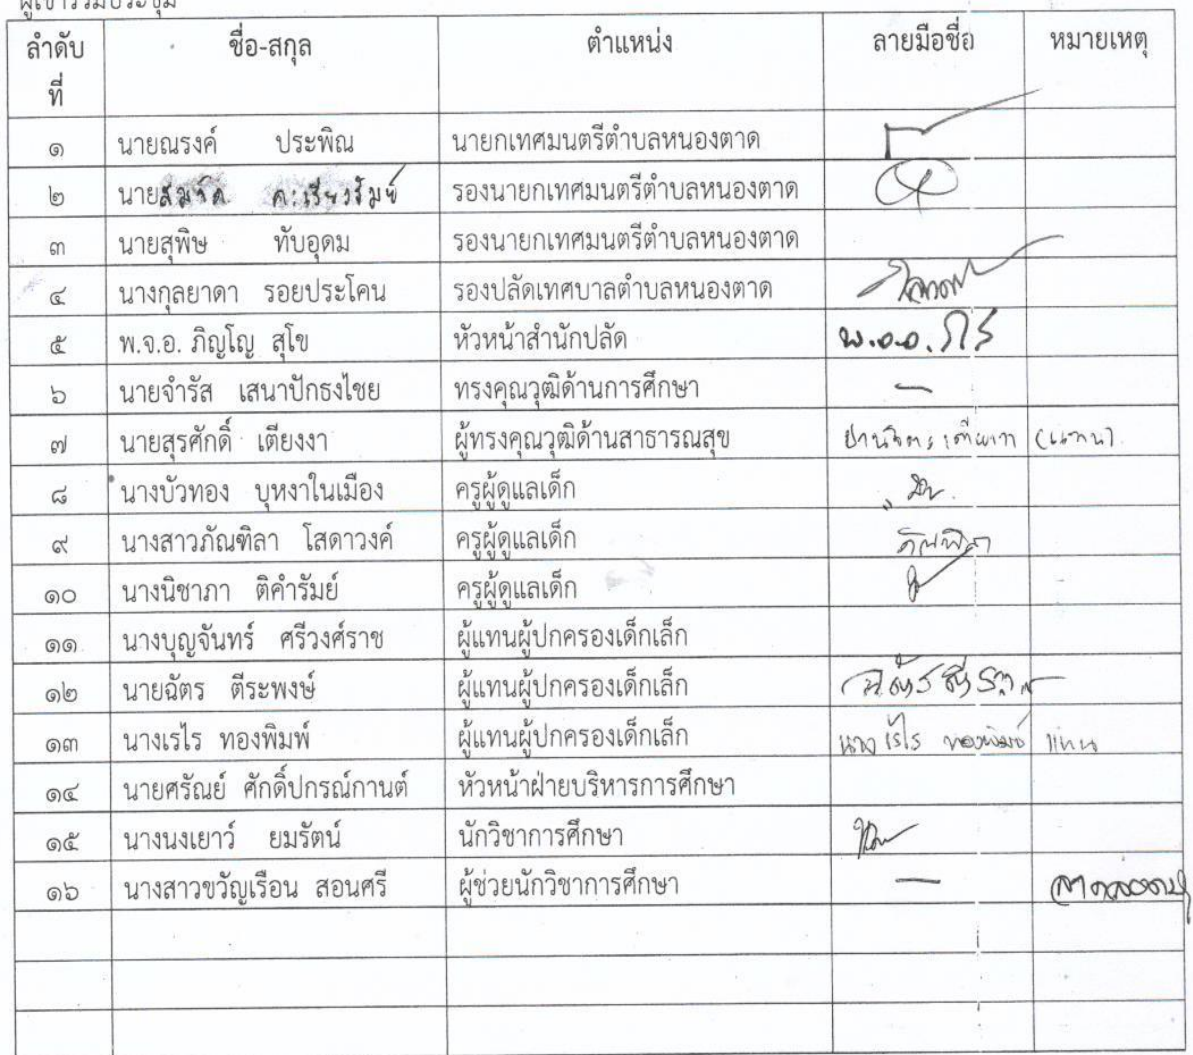 ผู้เข้าร่วมประชุม
ลำดับที่ ชื่อ-สกุล ตำแหน่ง ลายมือชื่อ หมายเหตุ
๑ นายณรงค์ ประพิณ นายกเทศมนตรีตำบลหนองตาด
๒ นาย รองนายกเทศมนตรีตำบลหนองตาด
๓ นายสุพิษ ทับอุดม รองนายกเทศมนตรีตำบลหนองตาด
๔ นางกุลยาดา รอยประโคน รองปลัดเทศบาลตำบลหนองตาด
๕ พ.จ.อ. ภิญโญ สุโข หัวหน้าสำนักปลัด พ.จ.อ.
๖ นายจำรัส เสนาปักธงไชย ทรงคุณวุฒิด้านการศึกษา –
๗ นายสุรศักดิ์ เตียงงา ผู้ทรงคุณวุฒิด้านสาธารณสุข (แทน)
๘ นางบัวทอง บุหงาในเมือง ครูผู้ดูแลเด็ก
๙ นางสาวภัณฑิลา โสดาวงค์ ครูผู้ดูแลเด็ก ภัณฑิลา
๑๐ นางนิชาภา ติคำรัมย์ ครูผู้ดูแลเด็ก
๑๑ นางบุญจันทร์ ศรีวงศ์ราช ผู้แทนผู้ปกครองเด็กเล็ก
๑๒ นายฉัตร ตีระพงษ์ ผู้แทนผู้ปกครองเด็กเล็ก
๑๓ นางเรไร ทองพิมพ์ ผู้แทนผู้ปกครองเด็กเล็ก นาง เรไร ทองพิมพ์ แทน
๑๔ นายศรัณย์ ศักดิ์ปกรณ์กานต์ หัวหน้าฝ่ายบริหารการศึกษา
๑๕ นางนงเยาว์ ยมรัตน์ นักวิชาการศึกษา
๑๖ นางสาวขวัญเรือน สอนศรี ผู้ช่วยนักวิชาการศึกษา – ลาคลอดบุตร